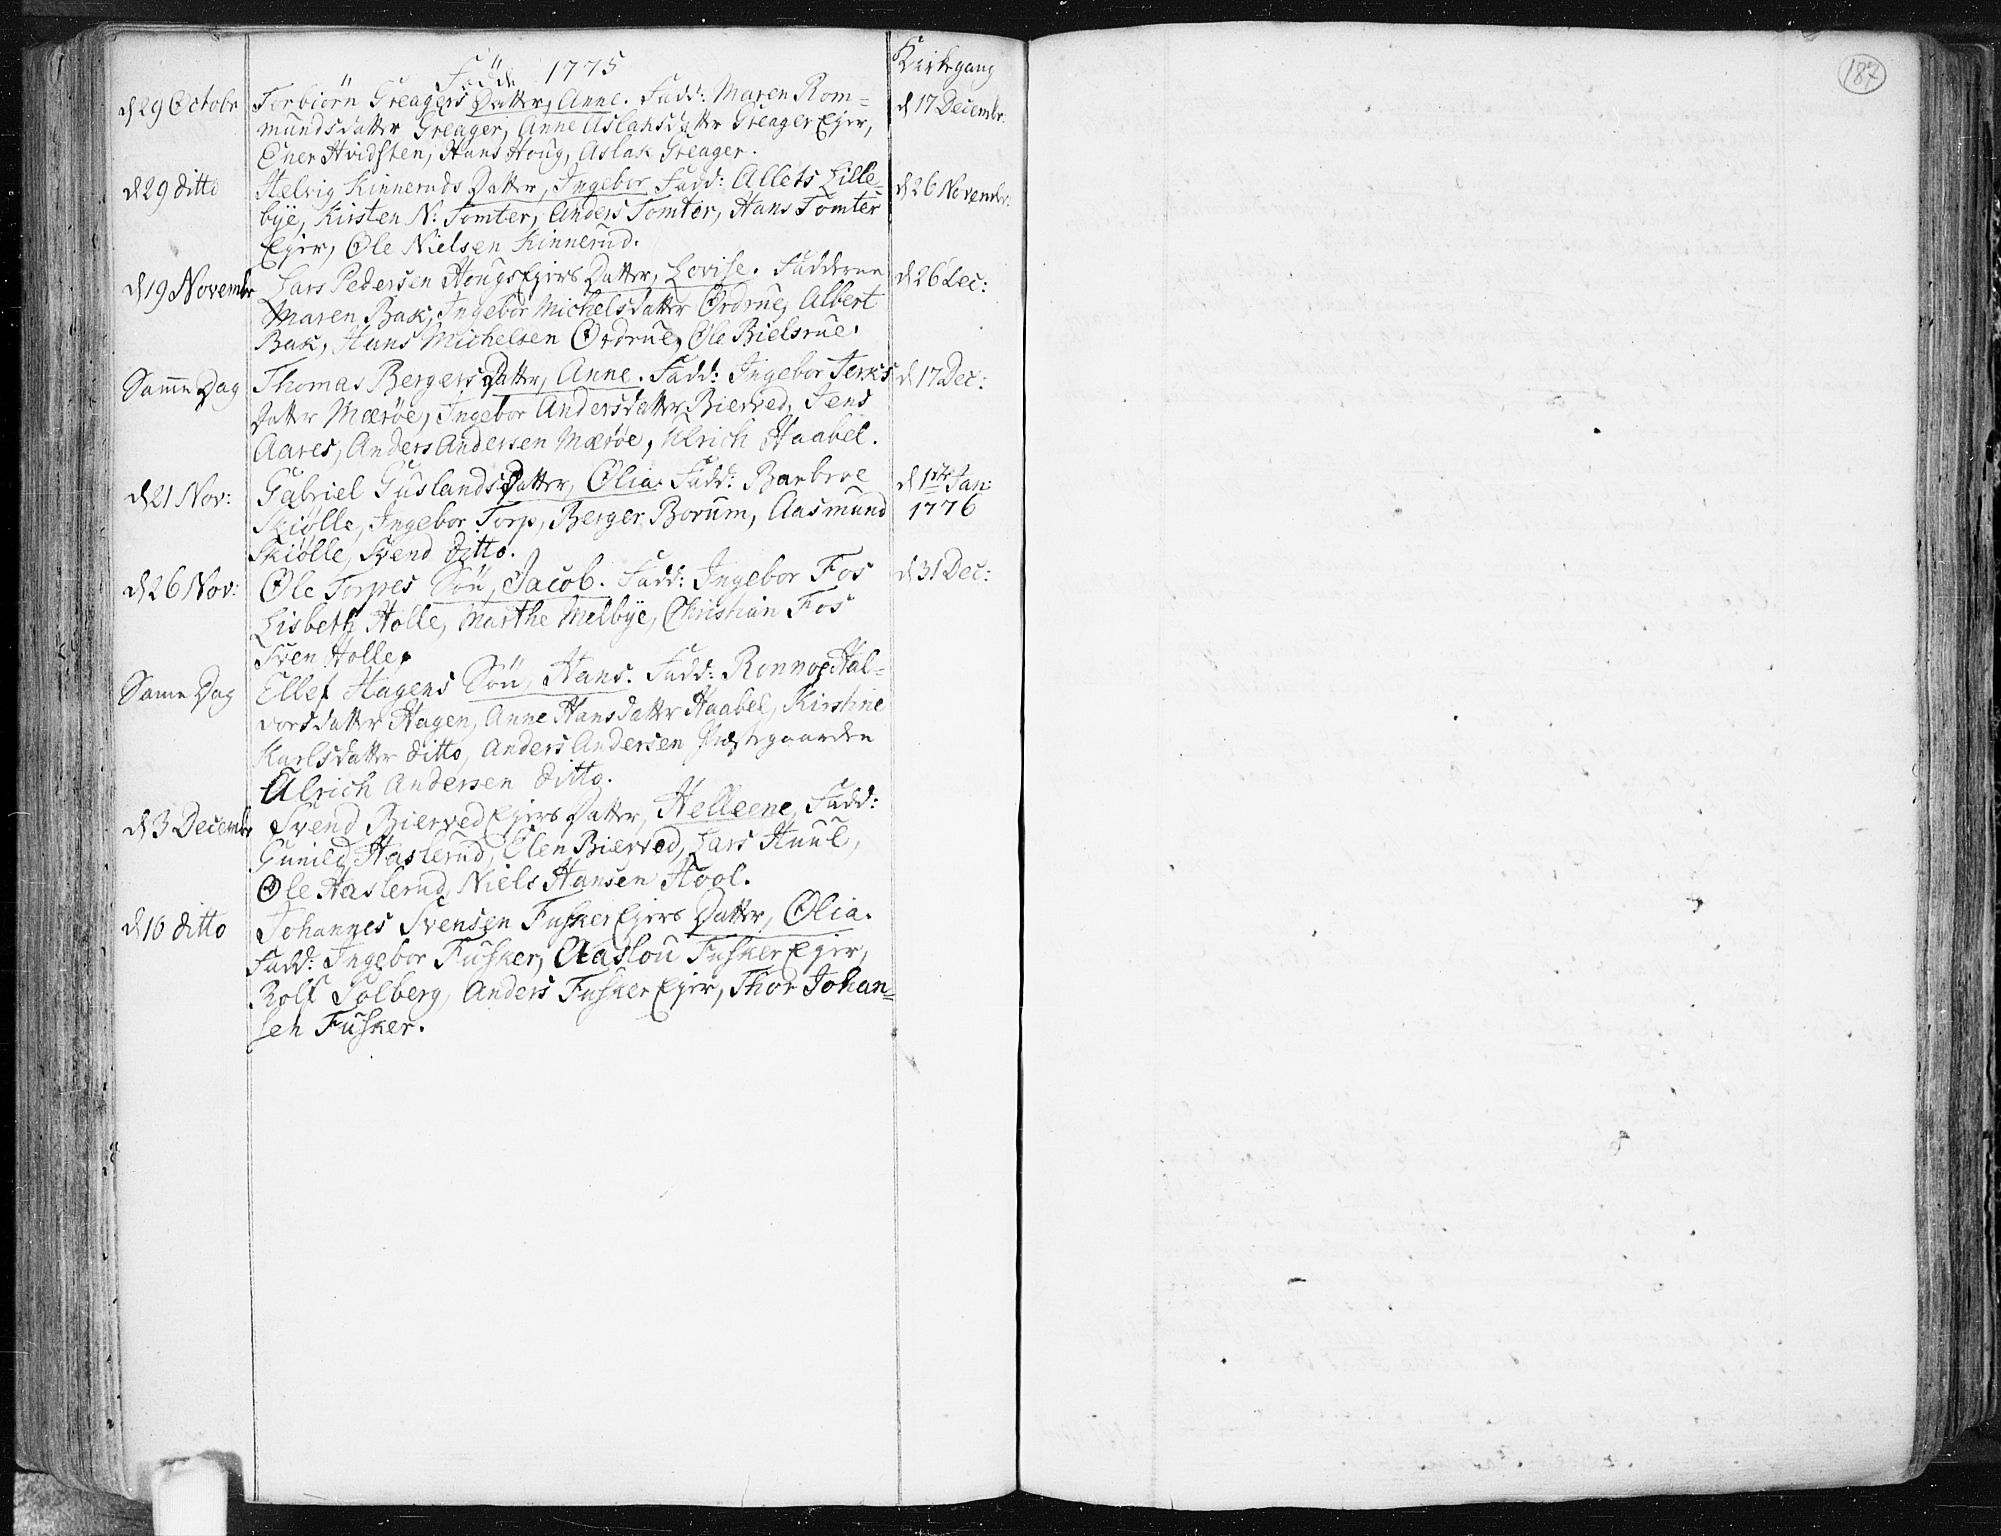 Födde 1775
Kirkegang
187
d 29 Octobr Torbiörn Greagers Datter, Anne. Fadd: Maren Rom= d 17 Decembr:
mundsdatter Greager, Anne Aslaksdatter Greager Eger,
Ener Hvidsten, Hans Houg, Aslak Greager.
d 29 ditto Helvig Kinneruds Datter, Ingebor Fadd: Allets Lille= d 26 Novembr:
bÿe, Kirsten N: Tomter, Anders Tomter, Hans Tomter
Eger, Ole Nielsen Kinnerud.
d 19 Novembr Lars Pedersen Hougs Egers Datter, Lovise. Fadderne d 26 Dec:
Maren Bak, Ingebor Michelsdatter Ordrue, Albert
Bak, Hans Michelsen Ordrue, Ole Bielsrue.
Samme Dag Thomas Bergers Datter, Anne. Fadd: Ingebor Jerks d 17 Dec:
Datter Mærøe, Ingebor Andersdatter Bierved, Jens
Aares, Anders Andersen Mærøe, Ulrich Haabel.
d 21 Nov: Gabriel Guslands Datter, Olia. Fadd: Barbroe d 1ste Jan:
Skiølle, Ingebor Torp, Berger Borum, Aasmund 1776
Skiølle, Svend ditto.
d 26 Nov: Ole Torpes Sön, Jacob. Fadd: Ingebor Fos d 31 Dec:
Lisbeth Holle, Marthe Melbÿe, Christian Fos
Sven Holle.
Same Dag Ellef Hagens Sön, Hans. Fadd: Ronnoe Hal=
vorsdatter Hagen, Anne Hansdatter Haabel, Kirstine
Karlsdatter ditto, Anders Andersen Præstegaarden
Ulrich Andersen ditto.
d 3 Decembr Svend Bierved Egers Datter, Helleene, Fadd:
Gunild Haslerud, Elen Bierved, Lars Huul,
Ole Haslerud, Niels Hansen Hool.
d 10 ditto Johannes Svensen Fusker Egers Datter, Olia.
Fadd: Ingebor Fusker, Aaslou Fusker Eger,
Rolf Solberg, Anders Fusker Eger, Thor Johan=
sen Fusker.